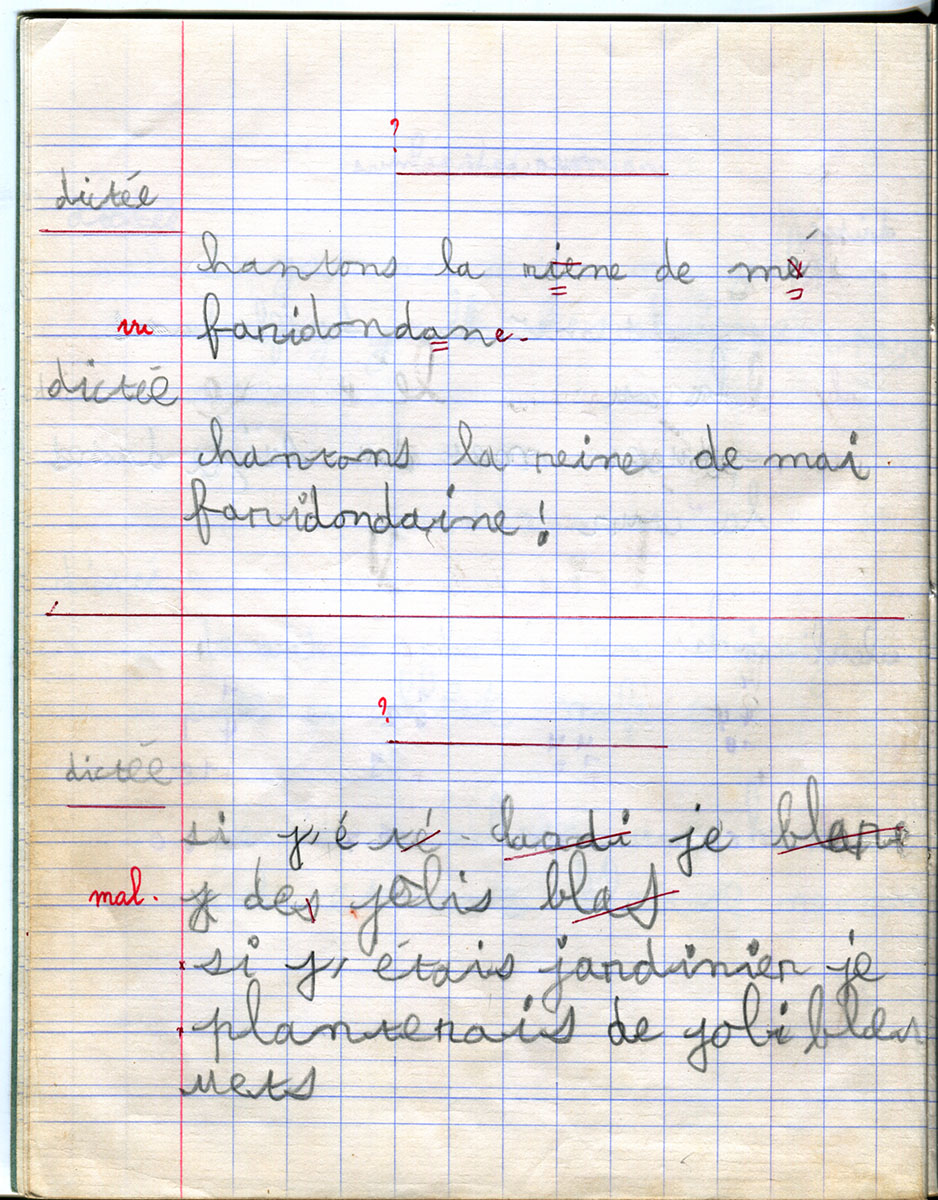 ?
dictée
hantons la riene de mé
vu faridondane.
dictée
chantons la reine de mai
faridondaine !
?
dictée
si j'é té je
mal. des jolis blas
si j'étais jardinier je
planterais de joli bleu
uets